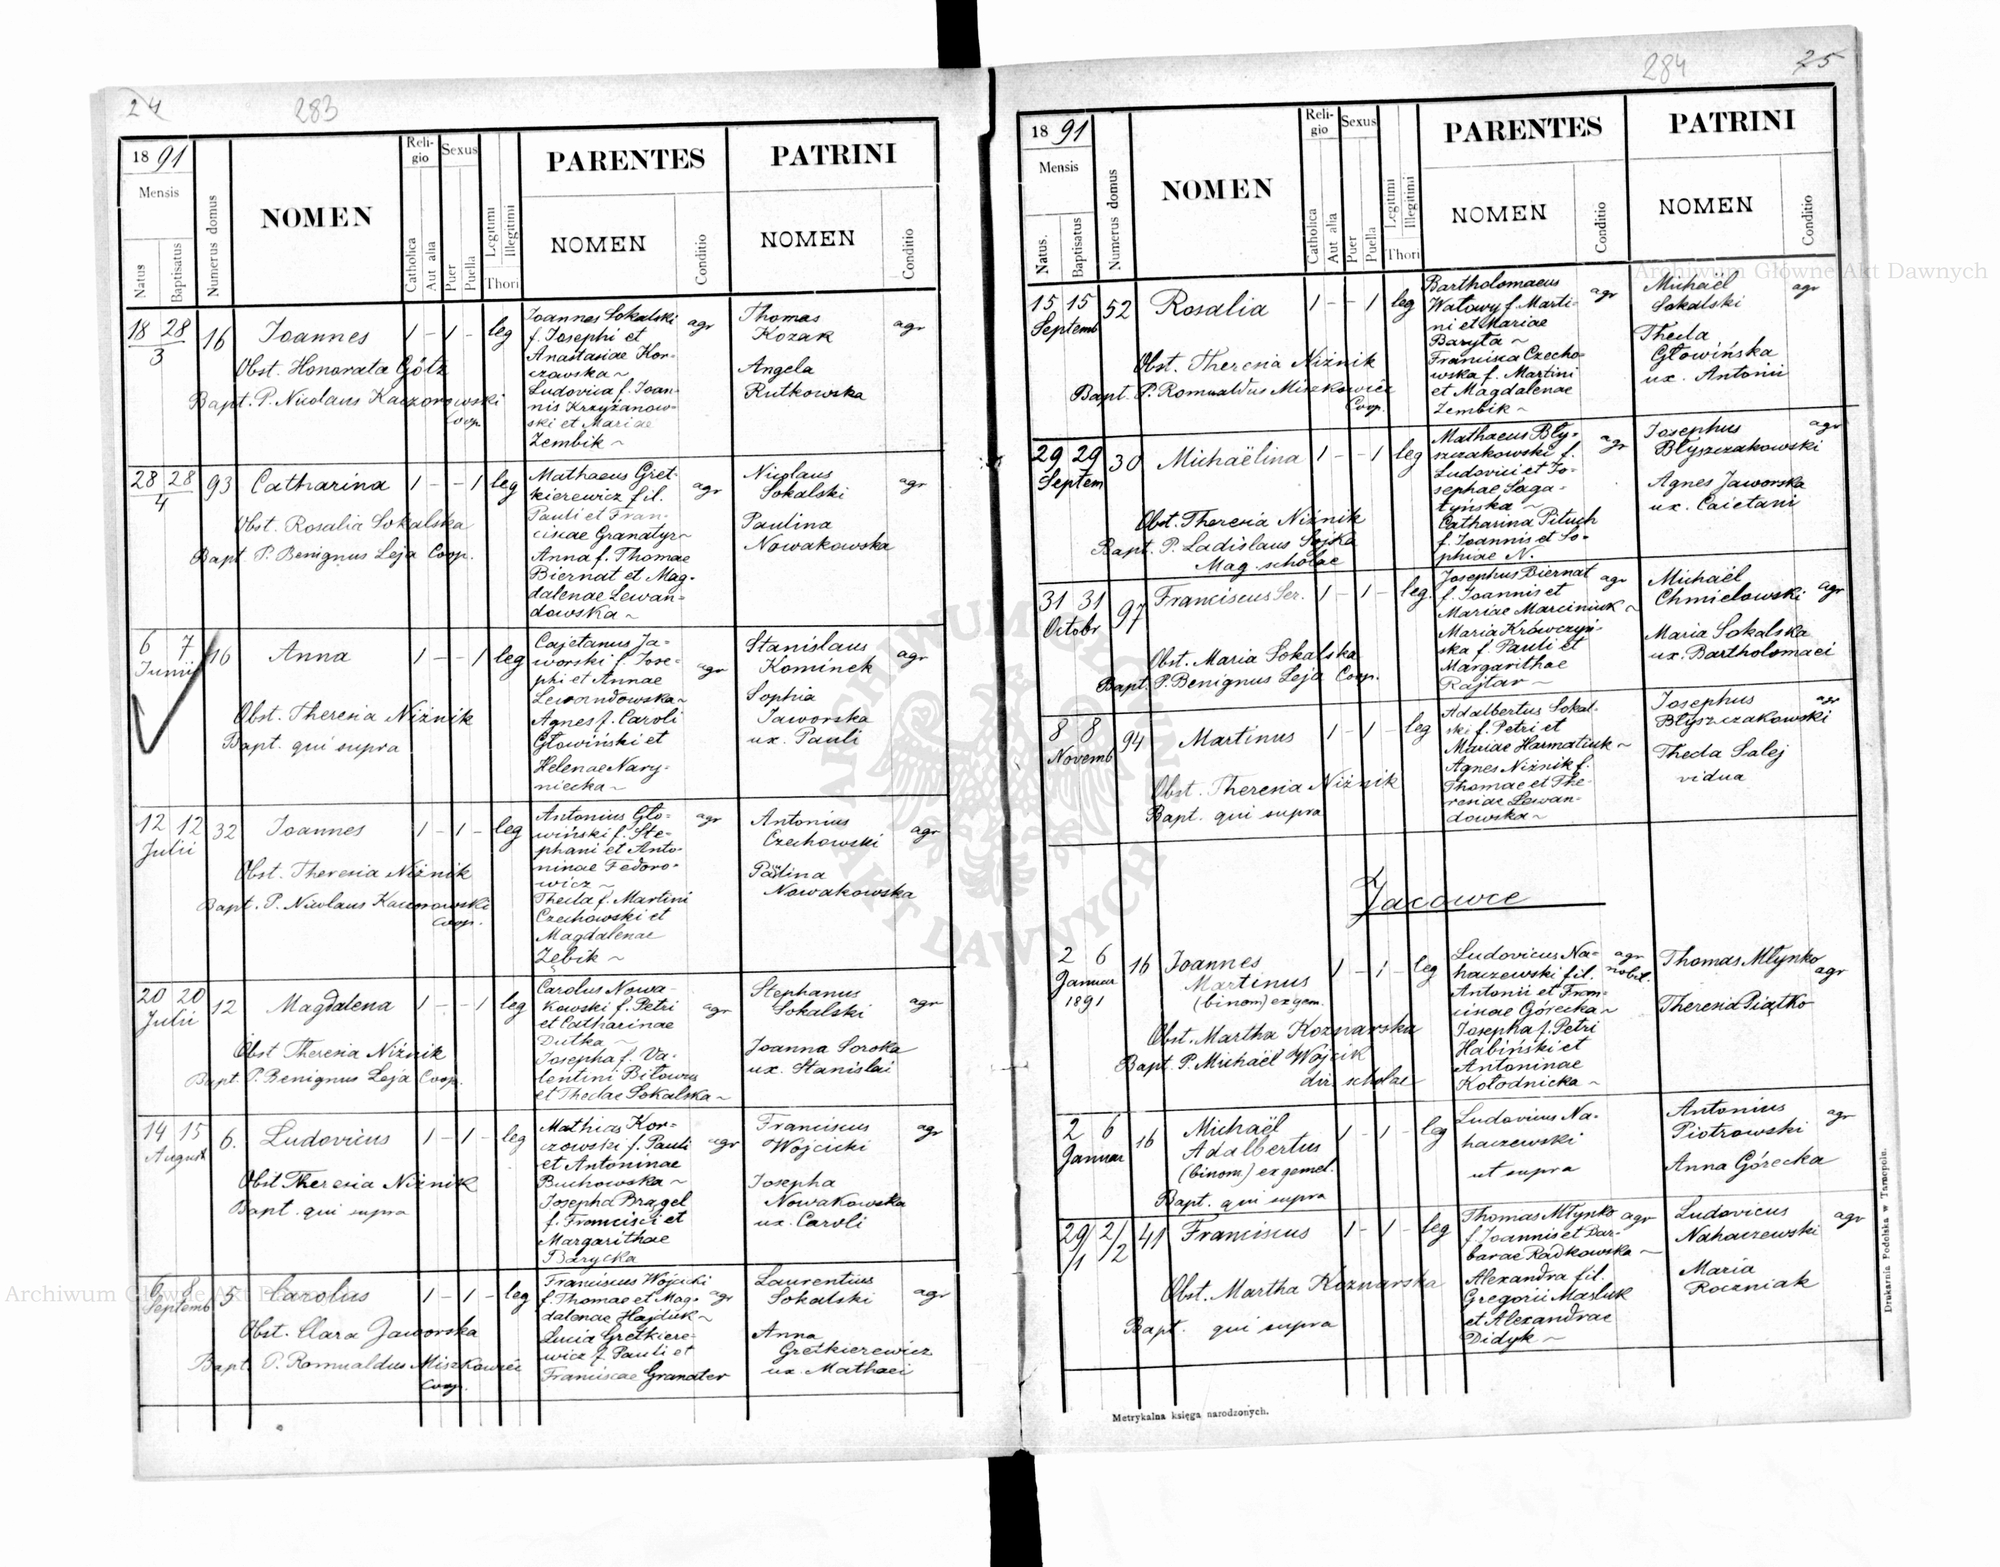 24
283
18 91
Mensis
Natus
Baptisatus
Numerus domus
NOMEN
Religio
Catholica
Aut alia
Sexus
Puer
Puella
Legitimi
Illegitimi
Thori
PARENTES
NOMEN
Conditio
PATRINI
NOMEN
Conditio
18 28
3
16
Joannes
1 - 1 -
leg
Obst. Honorata Götz
Bapt. P. Nicolaus Kaczorowski
Coop.
Joannes Sokalski
f. Josephi et
Anastasiae Kor-
czowska ~
Ludovica f. Joan-
nis Krzyżanow-
ski et Mariae
Zembik ~
agr
Thomas
Kozak
agr
Angela
Rutkowska
28 28
4
93
Catharina
1 - - 1
leg
Obst. Rosalia Sokalska
Bapt P. Benignus Leja Coop.
Mathaeus Gret-
kierewicz fil.
Pauli et Fran-
ciscae Granatyr ~
Anna f. Thomae
Biernat et Mag-
dalenae Lewan-
dowska ~
agr
Nicolaus
Sokalski
agr
Paulina
Nowakowska
6 7
Junii
16
Anna
1 - - 1
leg
Obst. Theresia Niżnik
Bapt. qui supra
Cajetanus Ja-
worski f. Jose-
phi et Annae
Lewandowska ~
Agnes f. Caroli
Głowiński et
Helenae Nary-
niecka ~
agr
Stanislaus
Kominek
agr
Sophia
Jaworska
ux. Pauli
12 12
Julii
32
Joannes
1 - 1 -
leg
Obst. Theresia Niżnik
Bapt. P. Nicolaus Kaczorowski
Coop.
Antonius Gło-
wiński f. Ste-
phani et Anto-
ninae Fedoro-
wicz ~
Thecla f. Martini
Czechowski et
Magdalenae
Zębik ~
agr
Antonius
Czechowski
agr
Paulina
Nowakowska
20 20
Julii
12
Magdalena
1 - - 1
leg
Obst Theresia Niżnik
Bapt. P. Benignus Leja Coop.
Carolus Nowa-
kowski f. Petri
et Catharinae
Dutka ~
Josepha f. Va-
lentini Bitowus
et Theclae Sokalska ~
agr
Stephanus
Sokalski
agr
Joanna Soroka
ux. Stanislai
14 15
August
6.
Ludovicus
1 - 1 -
leg
Obst Theresia Niżnik
Bapt. qui supra
Mathias Kor-
czowski f. Pauli
et Antoninae
Buchowska ~
Josepha Brągel
f. Francisci et
Margarithae
Barycka
agr
Franciscus
Wojcicki
agr
Josepha
Nowakowska
ux. Caroli
6 8
Septemb
5
Carolus
1 - 1 -
leg
Obst. Clara Jaworska
Bapt. P. Romualdus Miszkowicz
Coop.
Franciscus Wojcicki
f. Thomae et Mag-
dalenae Hajduk ~
Lucia Gretkiere-
wicz f. Pauli et
Franciscae Granater
agr
Laurentius
Sokalski
agr
Anna
Gretkierewicz
ux. Mathaei
284
25
18 91
Mensis
Natus.
Baptisatus
Numerus domus
NOMEN
Religio
Catholica
Aut alia
Sexus
Puer
Puella
Legitimi
Illegitimi
Thori
PARENTES
NOMEN
Conditio
PATRINI
NOMEN
Conditio
15 15
Septemb
52
Rosalia
1 - - 1
leg
Obst. Theresia Niżnik
Bapt. P. Romualdus Miszkowicz
Coop.
Bartholomaeus
Watowy f. Marti-
ni et Mariae
Baryta ~
Francisca Czecho-
wska f. Martini
et Magdalenae
Zembik ~
agr
Michaël
Sokalski
agr
Thecla
Głowińska
ux. Antonii
29 29
Septem
30
Michaëlina
1 - - 1
leg
Obst. Theresia Niżnik
Bapt. P. Ladislaus Sojka
Mag. scholae
Mathaeus Bły-
szczakowski f.
Ludovici et Jo-
sephae Saga-
tyńska ~
Catharina Pituch
f. Joannis et So-
phiae N.
agr
Josephus
Błyszczakowski
agr
Agnes Jaworska
ux. Caietani
31 31
Octobr
97
Franciscus Ser.
1 - 1 -
leg.
Obst. Maria Sokalska
Bapt. P. Benignus Leja Coop.
Josephus Biernat
f. Joannis et
Mariae Marciniuk ~
Maria Krówczyń-
ska f. Pauli et
Margarithae
Rajtar ~
agr
Michaël
Chmielowski
agr
Maria Sokalska
ux. Bartholomaei
8 8
Novemb
94
Martinus
1 - 1 -
leg
Obst. Theresia Niżnik
Bapt. qui supra
Adalbertus Sokal-
ski f. Petri et
Mariae Harmatiuk ~
Agnes Niżnik f.
Thomae et The-
resiae Lewan-
dowska ~
Josephus
Błyszczakowski
agr
Thecla Salej
vidua
Jacowce
2 6
Januar
1891
16
Joannes
Martinus
(binom) ex gem.
1 - 1 -
leg
Obst. Martha Koznarska
Bapt. P. Michaël Wojcik
dir. scholae
Ludovicus Na-
haczewski fil.
Antonii et Fran-
ciscae Górecka ~
Josepha f. Petri
Habiński et
Antoninae
Kołodnicka ~
agr
nobil.
Thomas Młynko
agr
Theresia Piątko
2 6
Januar
16
Michaël
Adalbertus
(binom) ex gemel.
1 - 1 -
leg
Bapt. qui supra
Ludovicus Na-
haczewski
ut supra
Antonius
Piotrowski
agr
Anna Górecka
29/1 2/2
41
Franciscus
1 - 1 -
leg
Obst. Martha Koznarska
Bapt. qui supra
Thomas Młynko
f. Joannis et Bar-
barae Radkowska ~
Alexandra fil.
Gregorii Masluk
et Alexandrae
Didyk ~
agr
Ludovicus
Nahaczewski
agr
Maria
Roczniak
Metrykalna księga narodzonych.
Drukarnia Podolska w Tarnopolu.
Archiwum Główne Akt Dawnych
Archiwum Główne Akt Dawnych
ARCHIWUM GŁÓWNE AKT DAWNYCH